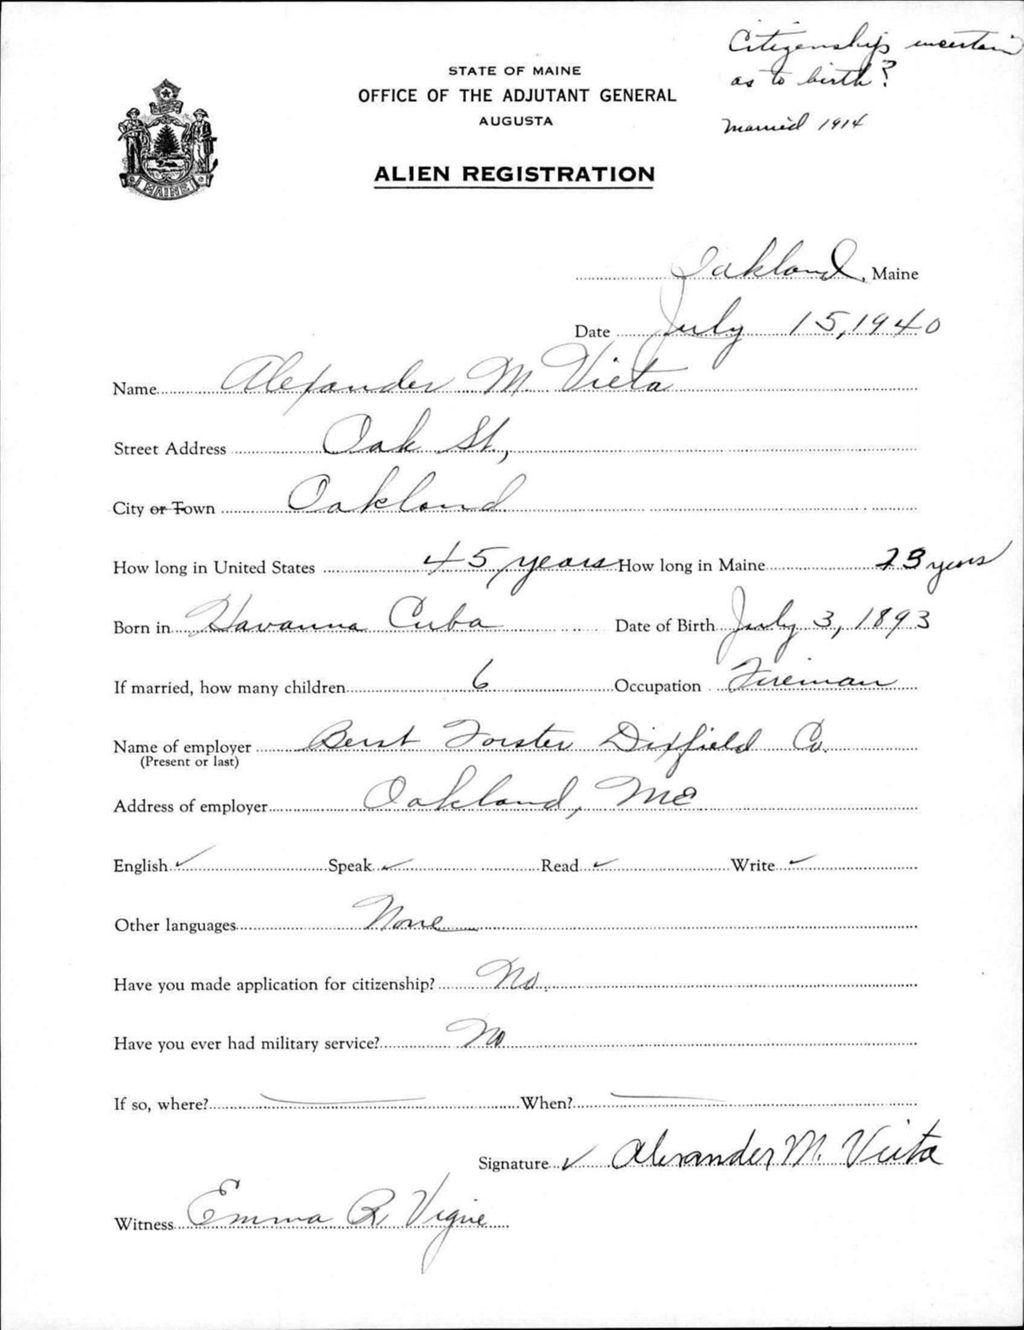 Citizenship uncertain
as to birth?
Married 1914
STATE OF MAINE
OFFICE OF THE ADJUTANT GENERAL
AUGUSTA
ALIEN REGISTRATION
MAINE
Oakland, Maine
Date July 15, 1940
Name Alexander M. Vieta
Street Address Oak St,
City or Town Oakland
How long in United States 45 years How long in Maine 23 years
Born in Havanna Cuba Date of Birth July 3, 1893
If married, how many children 6 Occupation Fireman
Name of employer Berst Forster Dixfield Co.
(Present or last)
Address of employer Oakland, Me
English ✓ Speak ✓ Read ✓ Write ✓
Other languages None
Have you made application for citizenship? No.
Have you ever had military service? No
If so, where? When?
Signature ✓ Alexander M. Vieta
Witness Emma R. Vigue